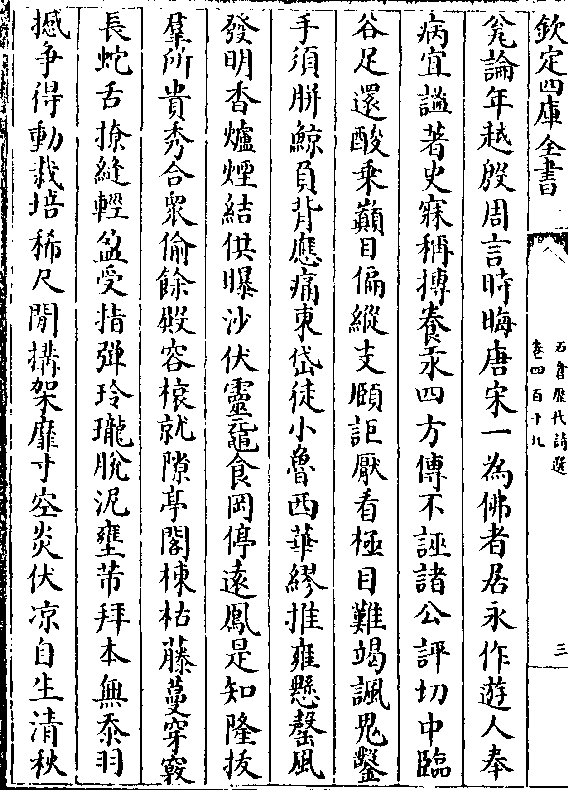 欽定四庫全書
石倉歷代詩選
卷四百十九
三
瓮論年越殷周言時晦唐宋一為佛者居永作遊人奉
病宜謐著史寐稱摶養汞四方傳不誣諸公評切中臨
谷足還酸乘巔目偏縱支頤詎厭看極目難竭諷鬼鑿
手須胼鯨負背應痛東岱徒小魯西華繆推雍懸罄風
發明香爐煙結供曝沙伏靈黿食岡停遠鳳是知隆拔
羣所貴秀合衆偷餘嘏容榱就隙亭閣棟枯藤蔓穿竅
長蛇舌撩縫輕盈受指彈玲瓏脫泥壅芾拜本無忝羽
撼争得動栽培稀尺閒搆架靡寸空炎伏凉自生清秋